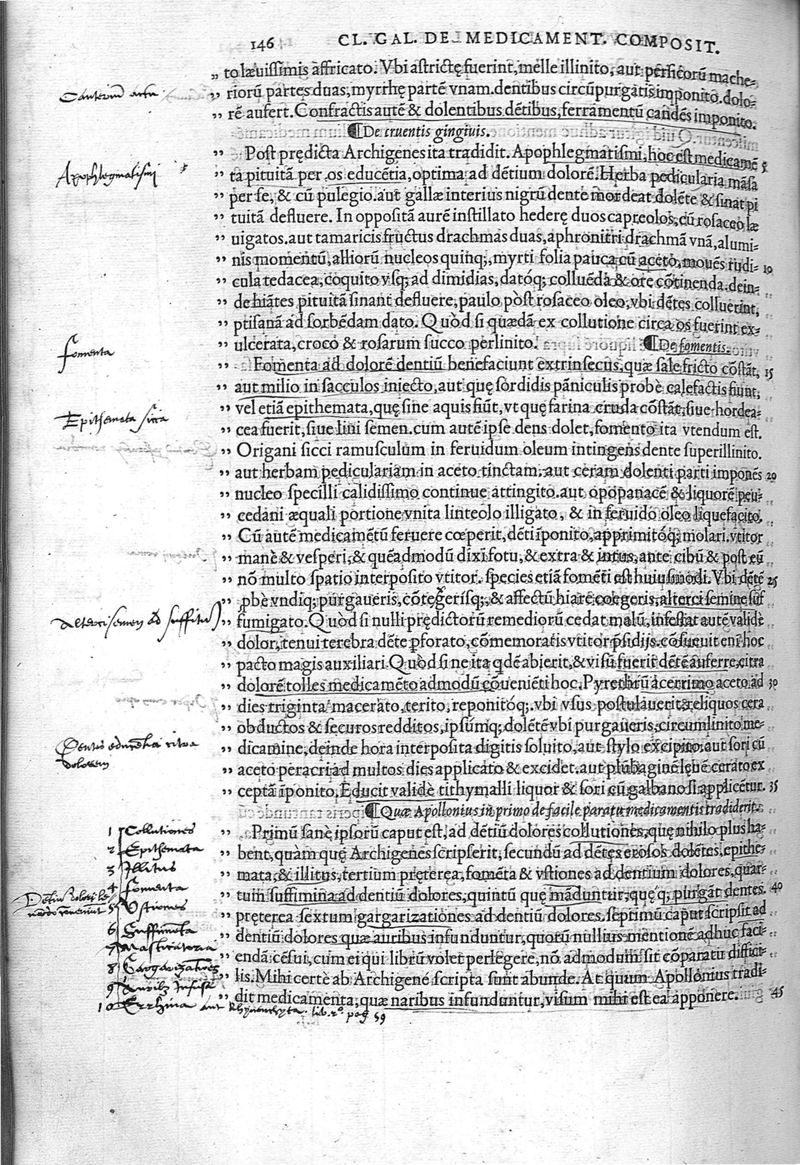 146 CL. GAL. DE MEDICAMENT. COMPOSIT.
„ to læuissimis affricato. Vbi astrictę fuerint, melle illinito, aut persicorū mache-
„ riorū partes duas, myrrhę partē vnam. dentibus circūpurgatis imponito. dolo-
„ rē aufert. Confractis autē & dolentibus dētibus, ferramentū candēs imponito.
¶De cruentis gingiuis.
„ Post prędicta Archigenes ita tradidit. Apophlegmatismi, hoc est medicamē 5
„ ta pituitā per os educētia, optima ad dētium dolorē. Herba pedicularia māsa
„ per se, & cū pulegio. aut gallæ interius nigrū dente mordeat dolēte & sinat pi
„ tuitā defluere. In oppositā aurē instillato hederę duos capreolos, cū rosaceo læ
„ uigatos. aut tamaricis fructus drachmas duas, aphronitri drachmā vnā, alumi-
„ nis momentū, alliorū nucleos quinq;, myrti folia pauca cū aceto, mouēs rudi- 10
„ cula tedacea, coquito vsq; ad dimidias, datóq; colluēda & ore cōtinenda. dein-
„ de hiātes pituitā sinant defluere, paulo pòst rosaceo oleo, vbi dētes colluerint,
„ ptisanā ad sorbēdam dato. Quòd si quædā ex collutione circa os fuerint ex-
„ ulcerata, croco & rosarum succo perlinito. ¶De fomentis.
„ Fomenta ad dolorē dentiū benefaciunt extrinsecus, quæ sale fricto cōstāt, 15
„ aut milio in sacculos iniecto, aut quę sordidis pāniculis probè calefactis fiunt,
„ vel etiā epithemata, quę sine aquis fiūt, vt quę farina cruda cōstāt, siue hordea-
„ cea fuerit, siue lini semen. cum autē ipse dens dolet, fomento ita vtendum est.
„ Origani sicci ramusculum in feruidum oleum intingens dente superillinito.
„ aut herbam pediculariam in aceto tinctam. aut ceram dolenti parti imponēs 20
„ nucleo specilli calidissimo continue attingito. aut opopanacē & liquorē peu-
„ cedani æquali portione vnita linteolo illigato, & in feruido oleo liquefacito.
„ Cū autē medicamētū feruere cœperit, dēti īponito, apprimitóq; molari. vtitor
„ manè & vesperi, & quēadmodū dixi fotu, & extra & intus, ante cibū & post eū
„ nō multo spatio interposito vtitor. species etiā fomēti est huiusmodi. Vbi dētē 25
„ ꝓbè vndiq; purgaueris, cōtęgerisq;, & affectū hiare coegeris, alterci semine suf
„ fumigato. Quòd si nulli prędictorū remediorū cedat malū, infestat autē validè
„ dolor, tenui terebra dēte ꝑforato, cōmemoratis vtitor pr̄sidijs. cōsueuit eni hoc
„ pacto magis auxiliari. Quòd si ne ita qdē abierit, & visū fuerit dētē auferre, citra
„ dolorē tolles medicamēto admodū cōueniēti hoc. Pyrethrū acerrimo aceto ad 30
„ dies triginta macerato, terito, reponitóq;. vbi vsus postulauerit, reliquos cera
„ obductos & securos redditos, ipsumq; dolētē vbi purgaueris, circumlinito me-
„ dicamine, deinde hora interposita digitis soluito, aut stylo excipito. aut sori cū
„ aceto peracri ad multos dies applicato & excidet. aut plūbaginē lęuē cerato ex
„ ceptā īponito. Educit validè tithymalli liquor & sori cū galbano si applicētur. 35
¶Quæ Apollonius in primo de facile paratu medicamentis tradiderit.
„ Primū sanè ipsorū caput est, ad dētiū dolores collutiones, quę nihilo plus ha-
„ bent, quàm quę Archigenes scripserit, secundū ad dētes erosos dolētes, epithe-
„ mata, & illitus, tertium pręterea, fomēta & vstiones ad dentium dolores, quar-
„ tum suffimina ad dentiū dolores, quintū quę māduntur, quęq; purgāt dentes. 40
„ pręterea sextum gargarizationes ad dentiū dolores. septimū caput scripsit ad
„ dentiū dolores quæ auribus infunduntur, quotū nullius mentionē adhuc faci-
„ endā cēsui, cum ei qui librū volet perlegere, nō admodū sit cōparatu diffici-
„ lis. Mihi certè ab Archigene scripta sunt abunde. At quum Apollonius tradi-
„ dit medicamenta, quæ naribus infunduntur, visum mihi est ea apponere. 45
Apophlegmatismi
fomenta
Epithemata sicca
Alterci semen ad suffitus
Dentis educendi citra
dolorem
1 Collutiones
2 Epithemata
3 Illitus
4 fomenta
5 Vstiones
6 Suffimenta
7 Masticatoria
8 Gargarizationes
9 Auribus infusa
10 Errhina aut Rhynenchyta. lib. 2º pag 59